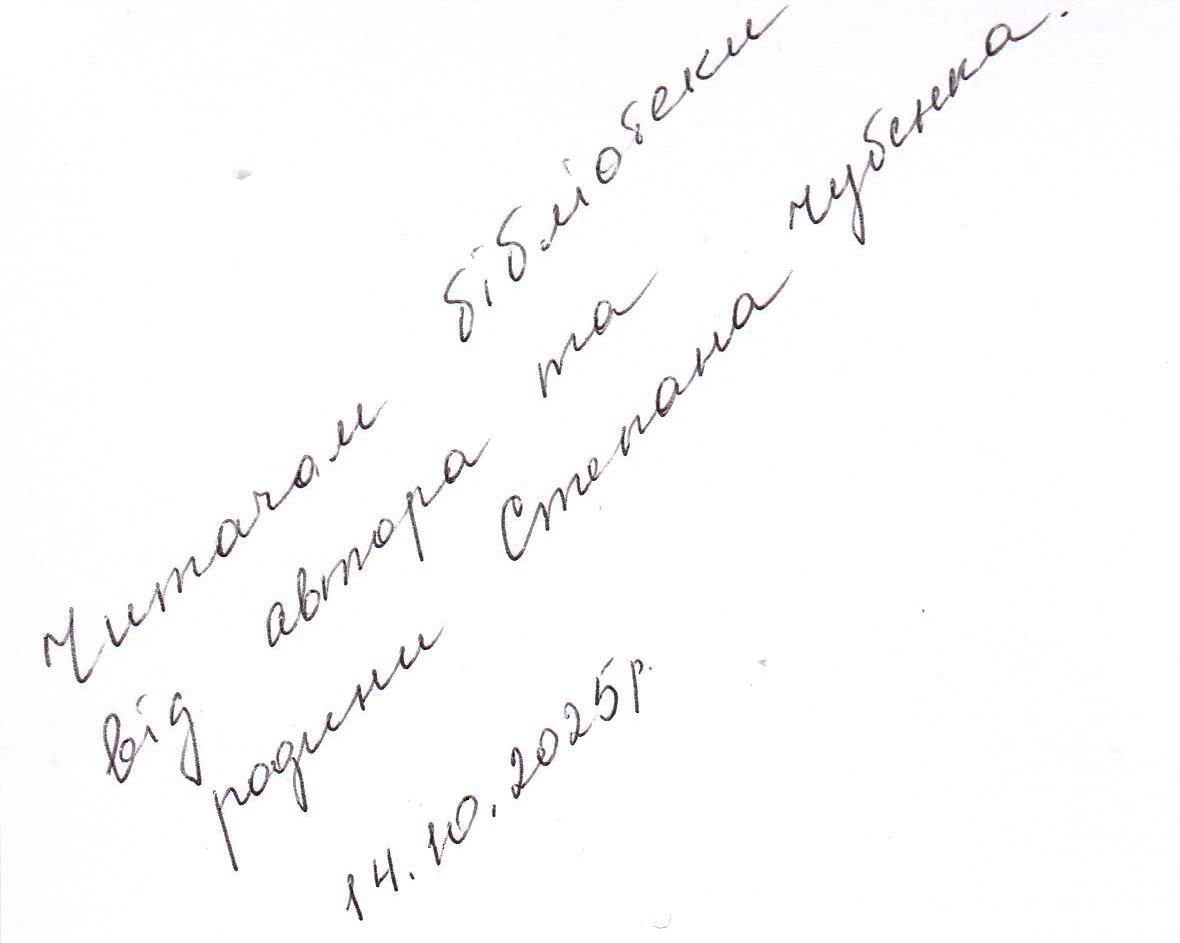 Читачам бібліотеки
від автора та
родини Степана Чубенка.
14.10.2025р.